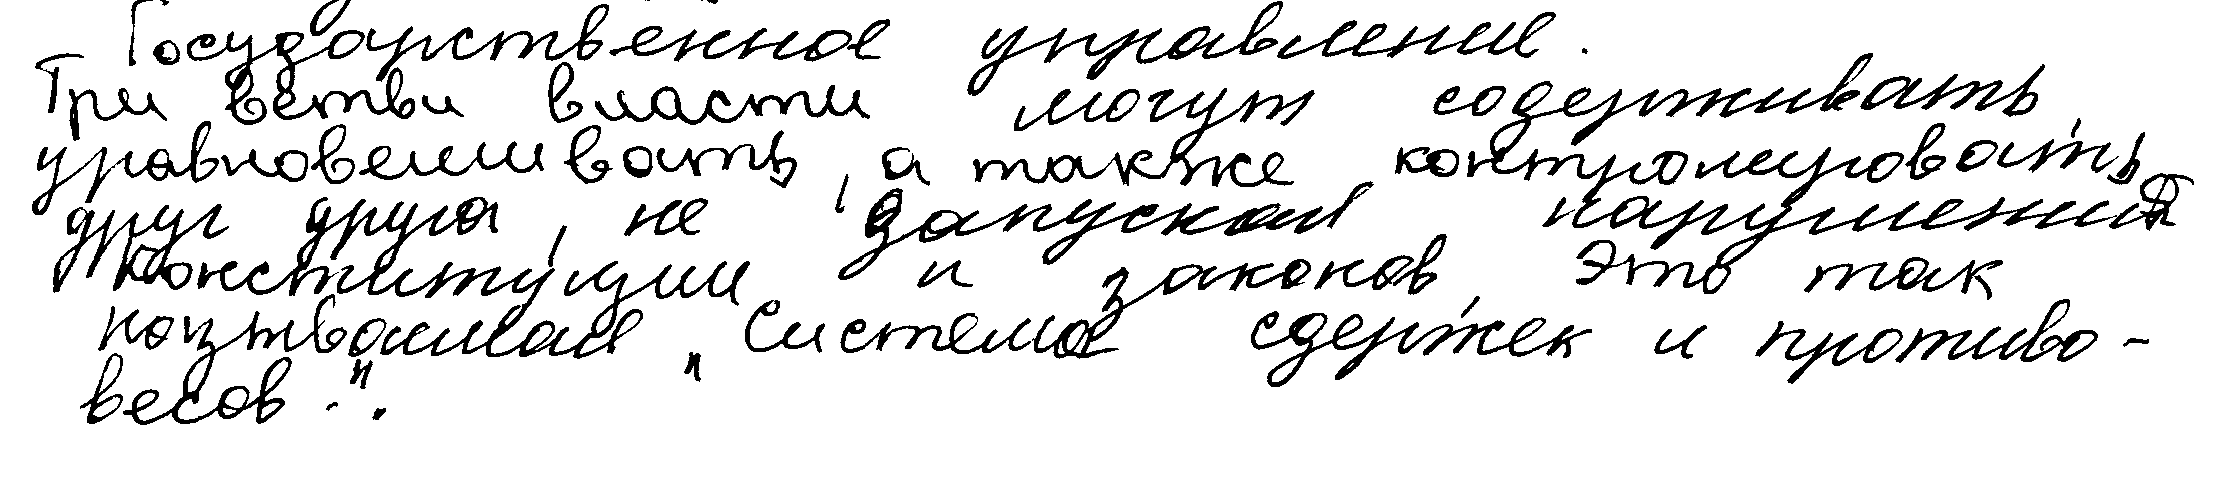 Государственное управление.
Три ветви власти могут содерживать,
уравновешивать, а также контролировать
друг друга, не запуская нарушения
Конституции и законов. Это так
называемая „Система сдержек и противо-
весов".